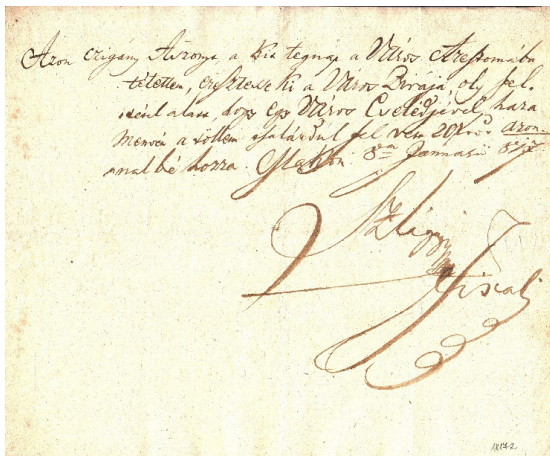 Azon czigány Aszony, a kit tegnap a Város Árestomába
tétettem, eresztesse ki a Város Birája, oly fel-
tétel alatt, hogy egy Város Cselédjével haza
menvén a tőllem csalárdul fel vett 20 f azon-
nal bé hozza. 8a Januarii 817
Szilágyi
Fiscalis
1817.2